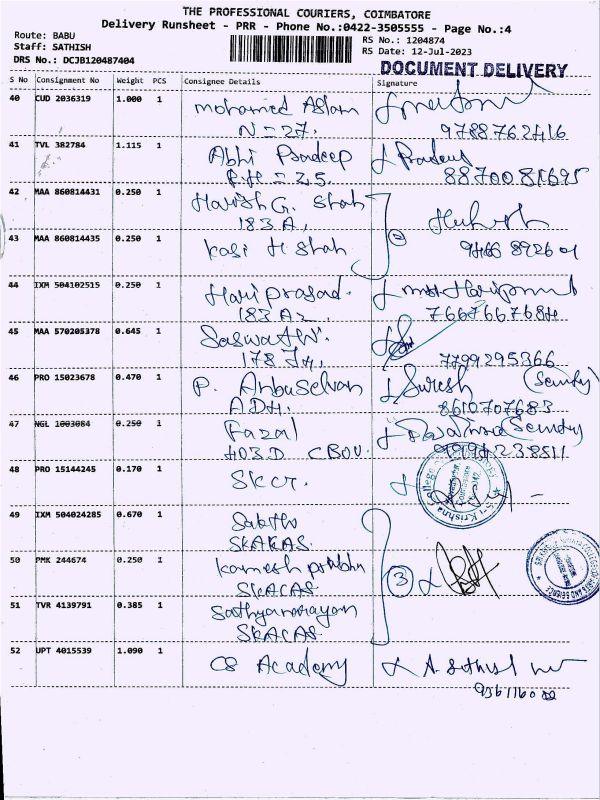 THE PROFESSIONAL COURIERS, COIMBATORE
Delivery Runsheet - PRR - Phone No.:0422-3505555 - Page No.:4
Route: BABU
Staff: SATHISH
DRS No.: DCJB120487404
RS No.: 1204874
RS Date: 12-Jul-2023
DOCUMENT DELIVERY
S No Consignment No Weight PCS Consignee Details Signature
40 CUD 2036319 1.000 1 Mohamed Aslam
N = 27. 9788762416
41 TVL 382784 1.115 1 Abhi Pradeep
P.H = 25.
42 MAA 860814431 0.250 1 Harish G. Shah
183 A,
43 MAA 860814435 0.250 1 Kasi H Shah
2
44 IXM 504102515 0.250 1 Hari prasad.
183 A2 7667667684
45 MAA 570205378 0.645 1 Saswath.
178 7799295366
46 PRO 15023678 0.470 1 P. Anbuselvan Suresh
8610707683
47 NGL 1003084 0.250 1 Fazal
403 D CBOU.
48 PRO 15144245 0.170 1 SKCT.
49 IXM 504024285 0.670 1 Sakthi
SKACAS.
50 PMK 244674 0.250 1 Kamesh prabhu
SKACAS 3
51 TVR 4139791 0.385 1 Sathyanarayan
SKACAS.
52 UPT 4015539 1.090 1 CS Academy